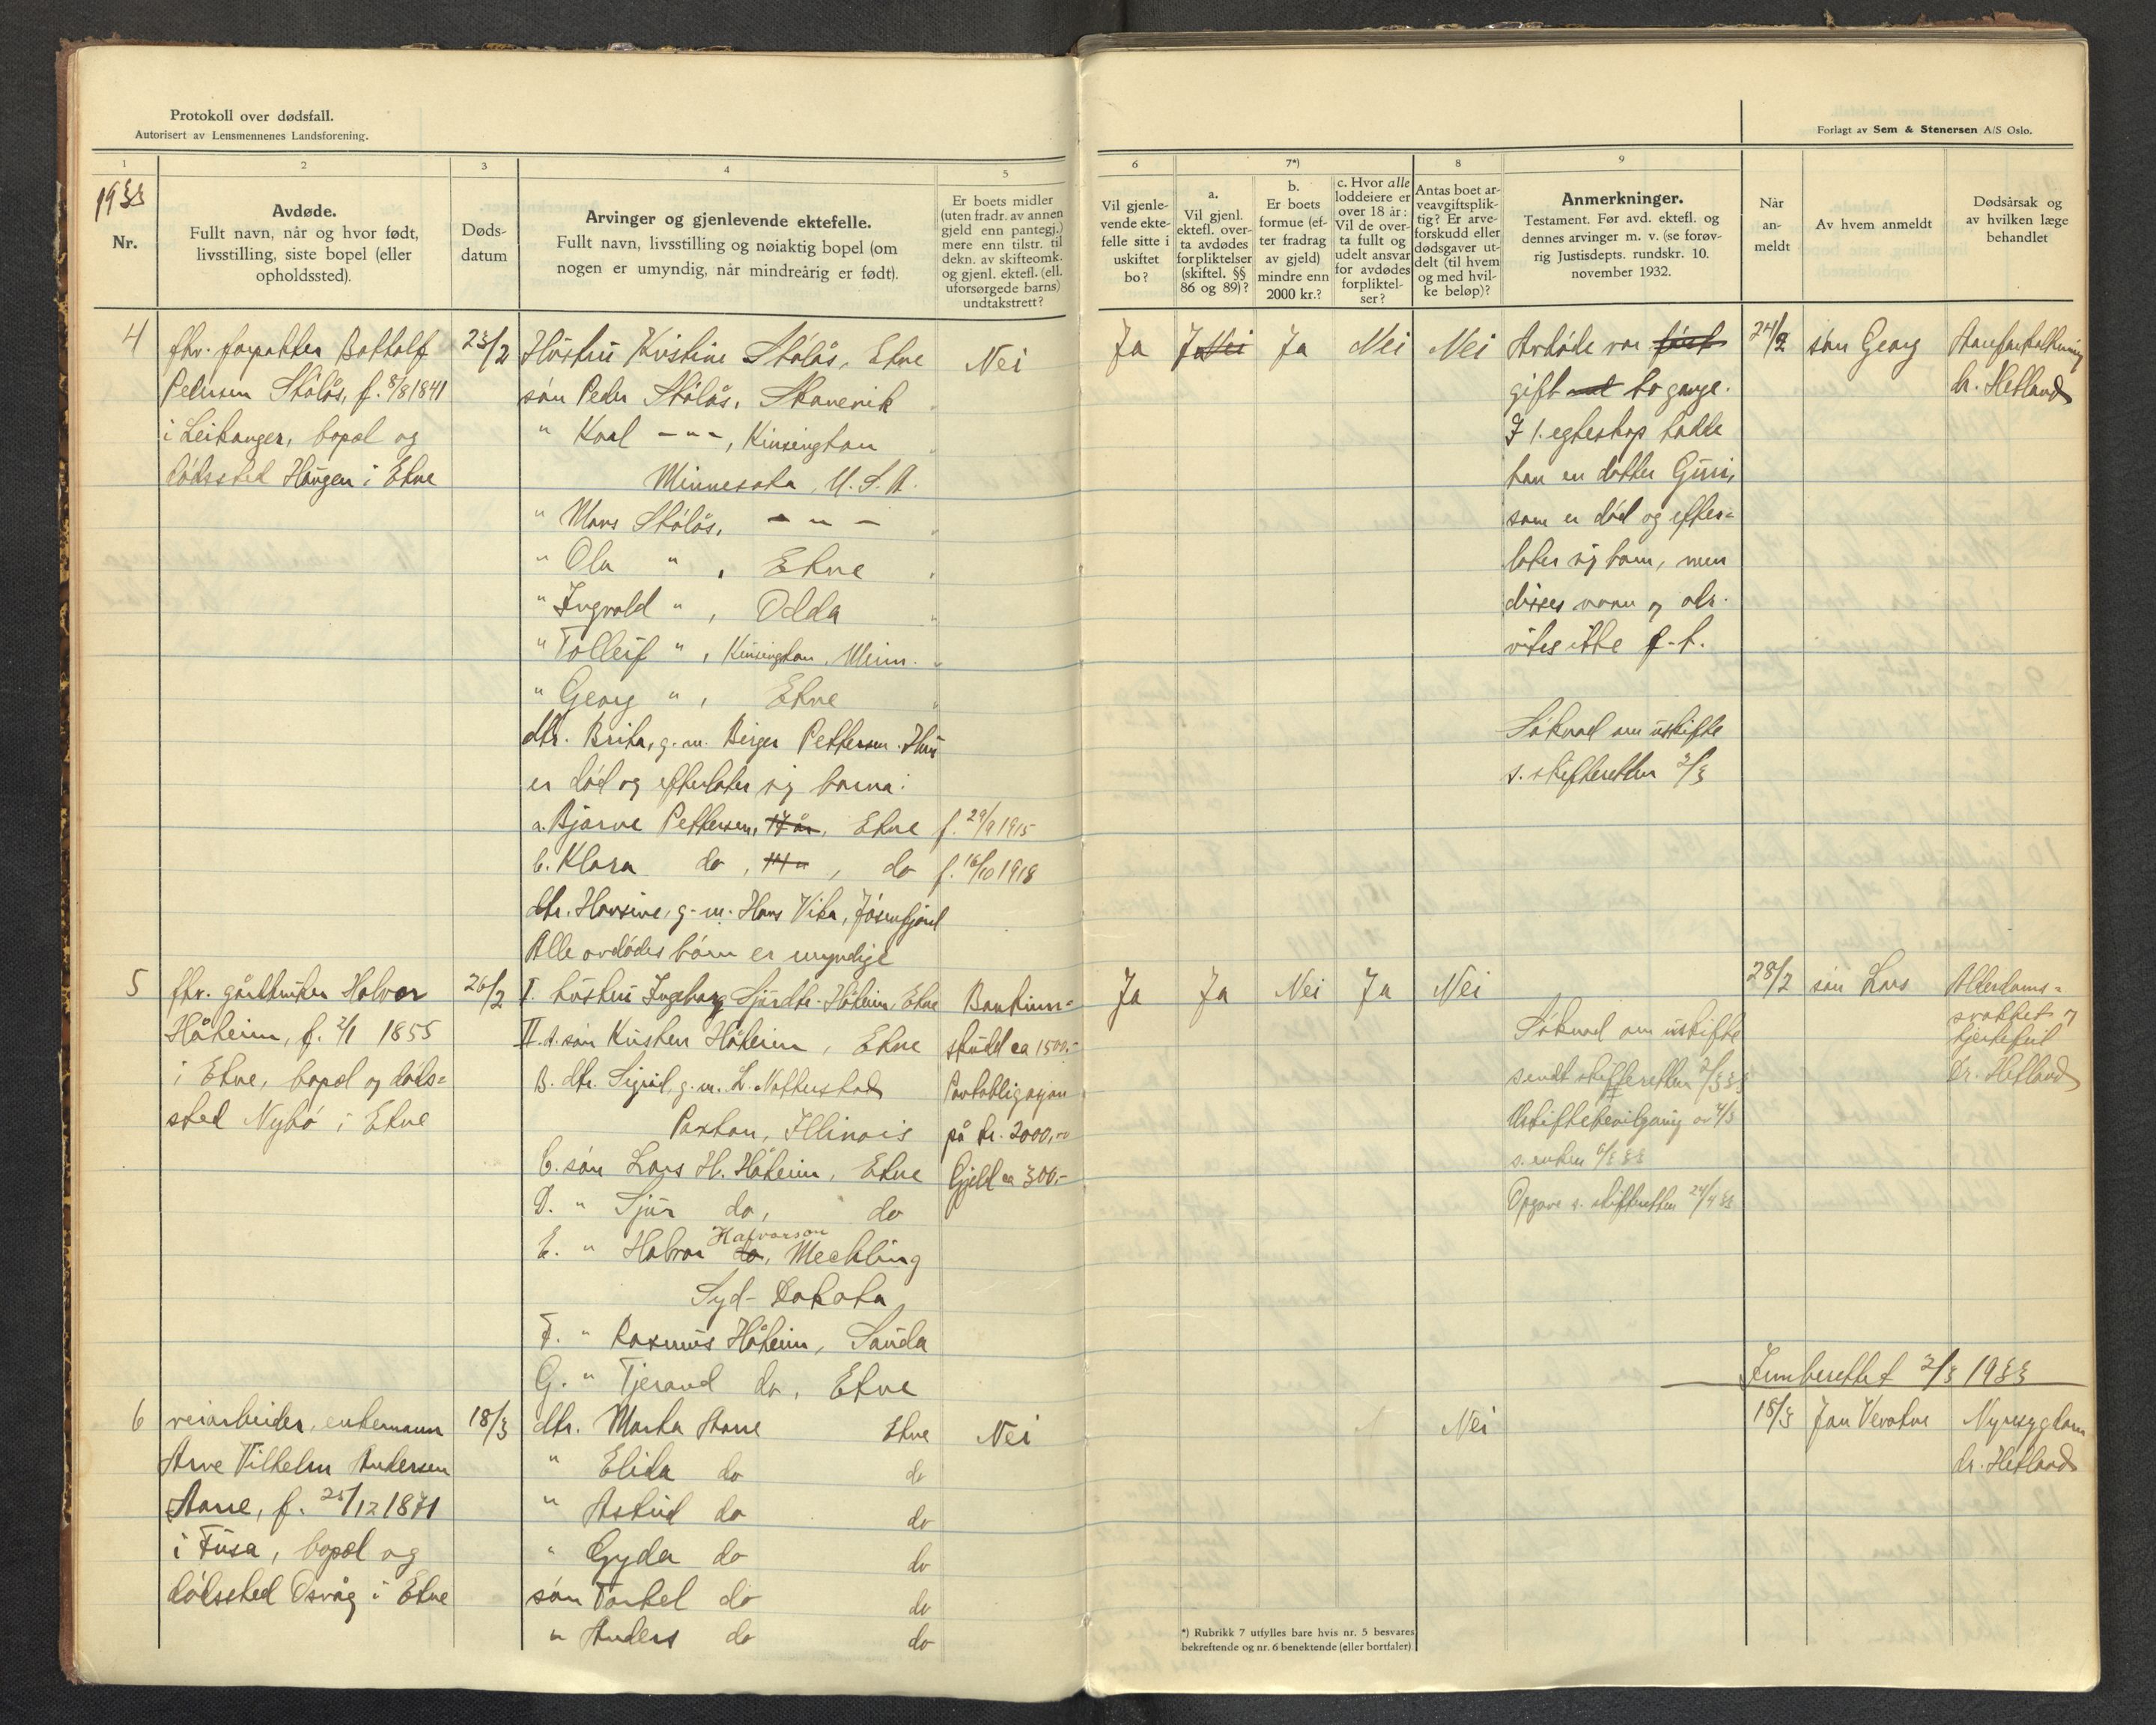 Protokoll over dødsfall.
Autorisert av Lensmennenes Landsforening.
Forlagt av Sem & Stenersen A/S Oslo.
1
2
3
4
5
6
7*)
8
9
1933
Nr.
Avdøde.
Fullt navn, når og hvor født,
livsstilling, siste bopel (eller
opholdssted).
Døds-
datum
Arvinger og gjenlevende ektefelle.
Fullt navn, livsstilling og nøiaktig bopel (om
nogen er umyndig, når mindreårig er født).
Er boets midler
(uten fradr. av annen
gjeld enn pantegj.)
mere enn tilstr. til
dekn. av skifteomk.
og gjenl. ektefl. (ell.
uforsørgede barns)
undtakstrett?
Vil gjenle-
vende ekte-
felle sitte i
uskiftet
bo?
a.
Vil gjenl.
ektefl. over-
ta avdødes
forpliktelser
(skiftel. §§
86 og 89)?
b.
Er boets
formue (ef-
ter fradrag
av gjeld)
mindre enn
2000 kr.?
c. Hvor alle
loddeiere er
over 18 år:
Vil de over-
ta fullt og
udelt ansvar
for avdødes
forpliktel-
ser?
Antas boet ar-
veavgiftsplik-
tig? Er arve-
forskudd eller
dødsgaver ut-
delt (til hvem
og med hvil-
ke beløp)?
Anmerkninger.
Testament. Før avd. ektefl. og
dennes arvinger m. v. (se forøv-
rig Justisdepts. rundskr. 10.
november 1932.
Når
an-
meldt
Av hvem anmeldt
Dødsårsak og
av hvilken læge
behandlet
4
fhv. forpakter Bottolf
Pedersen Stølås, f. 8/8 1841
i Leikanger, bopel og
dødssted Haugen i Etne
23/2
Hustru Kristine Stølås, Etne
søn Peder Stølås, Skånevik
" Karl -"-, Kinsington
Minnesota, U.S.A.
" Mons Stølås, - " -
" Ola " , Etne
" Ingvald " , Odda
" Tolleif " , Kinsington, Minn.
" Georg " , Etne
dtr. Brita, g. m. Birger Pettersen. Hun
er død og efterlater sig barna:
a. Bjarne Pettersen, 17 år, Etne f. 29/9 1915
b. Klara do, 14 " , do f. 16/10 1918
dtr. Hansine, g. m. Hans Vika, Jøsenfjord
Alle avdødes børn er myndige
Nei
Ja
Ja Nei
Ja
Nei
Nei
Avdøde var først
gift to gange.
I 1. egteskap hadde
han en datter Guri,
som er død og efter=
later sig barn, men
disses navn og adr.
vites ikke f. t.
Søknad om uskifte
s. skifteretten 2/3
24/2
søn Georg
dr. Hetland
5
fhv. gårdbruker Halvor
Håheim, f. 2/1 1855
i Etne, bopel og døds=
sted Nybø i Etne
26/2
I. hustru Ingeborg Sjursdtr. Håheim, Etne
II. A. søn Kristen Håheim, Etne
B. dtr. Sigrid, g. m. L. Natterstad
Paxton, Illinois
C. søn Lars H. Håheim, Etne
D. " Sjur do, do
Halvorson
E. " Halvor do, Meckling
Syd-Dakota
F. " Rasmus Håheim, Sauda
G. " Tjerand do, Etne
Bankinn=
skudd ca 1500.-
Pantobligasjon
på kr. 2000,-
Gjeld ca 300.-
Ja
Ja
Nei
Ja
Nei
Søknad om uskifte
sendt skifteretten 2/3 33
Uskiftebevilgning av 4/3
s. enken 6/3 33
Opgave s. skifteretten 24/4 33
28/2
søn Lars
Alderdoms=
svakhet og
hjertefeil
Dr. Hetland
Innberettet 2/3 1933
6
veiarbeider, enkemann
Arne Vilhelm Andersen
Aarre, f. 25/12 1871
i Fusa, bopel og
dødssted Osvåg i Etne
18/3
dtr. Marta Aarre Etne
" Elida do do
" Astrid do do
" Gyda do do
søn Torkel do do
" Anders do do
Nei
Nei
18/3
Jan Vevatne
Nyresygdom
dr. Hetland
*) Rubrikk 7 utfylles bare hvis nr. 5 besvares
bekreftende og nr. 6 benektende (eller bortfaler)